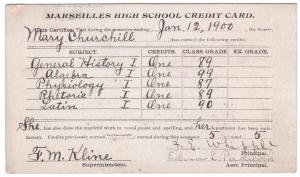 MARSEILLES HIGH SCHOOL CREDIT CARD.
This Certifies, That during the semester ending Jan. 12, 1900, the bearer,
Mary Churchill has earned the following credits.
SUBJECT. CREDITS. CLASS GRADE EX. GRADE.
General History I One 89
Algebra I One 99
Physiology I One 87
Rhetoric I One 89
Latin I One 90
She has also done the required work in vocal music and spelling, and her department has been satis-
factory. Credits previously earned this semester 5 5
Principal.
F. M. Kline
Superintendent. Asst. Principal.